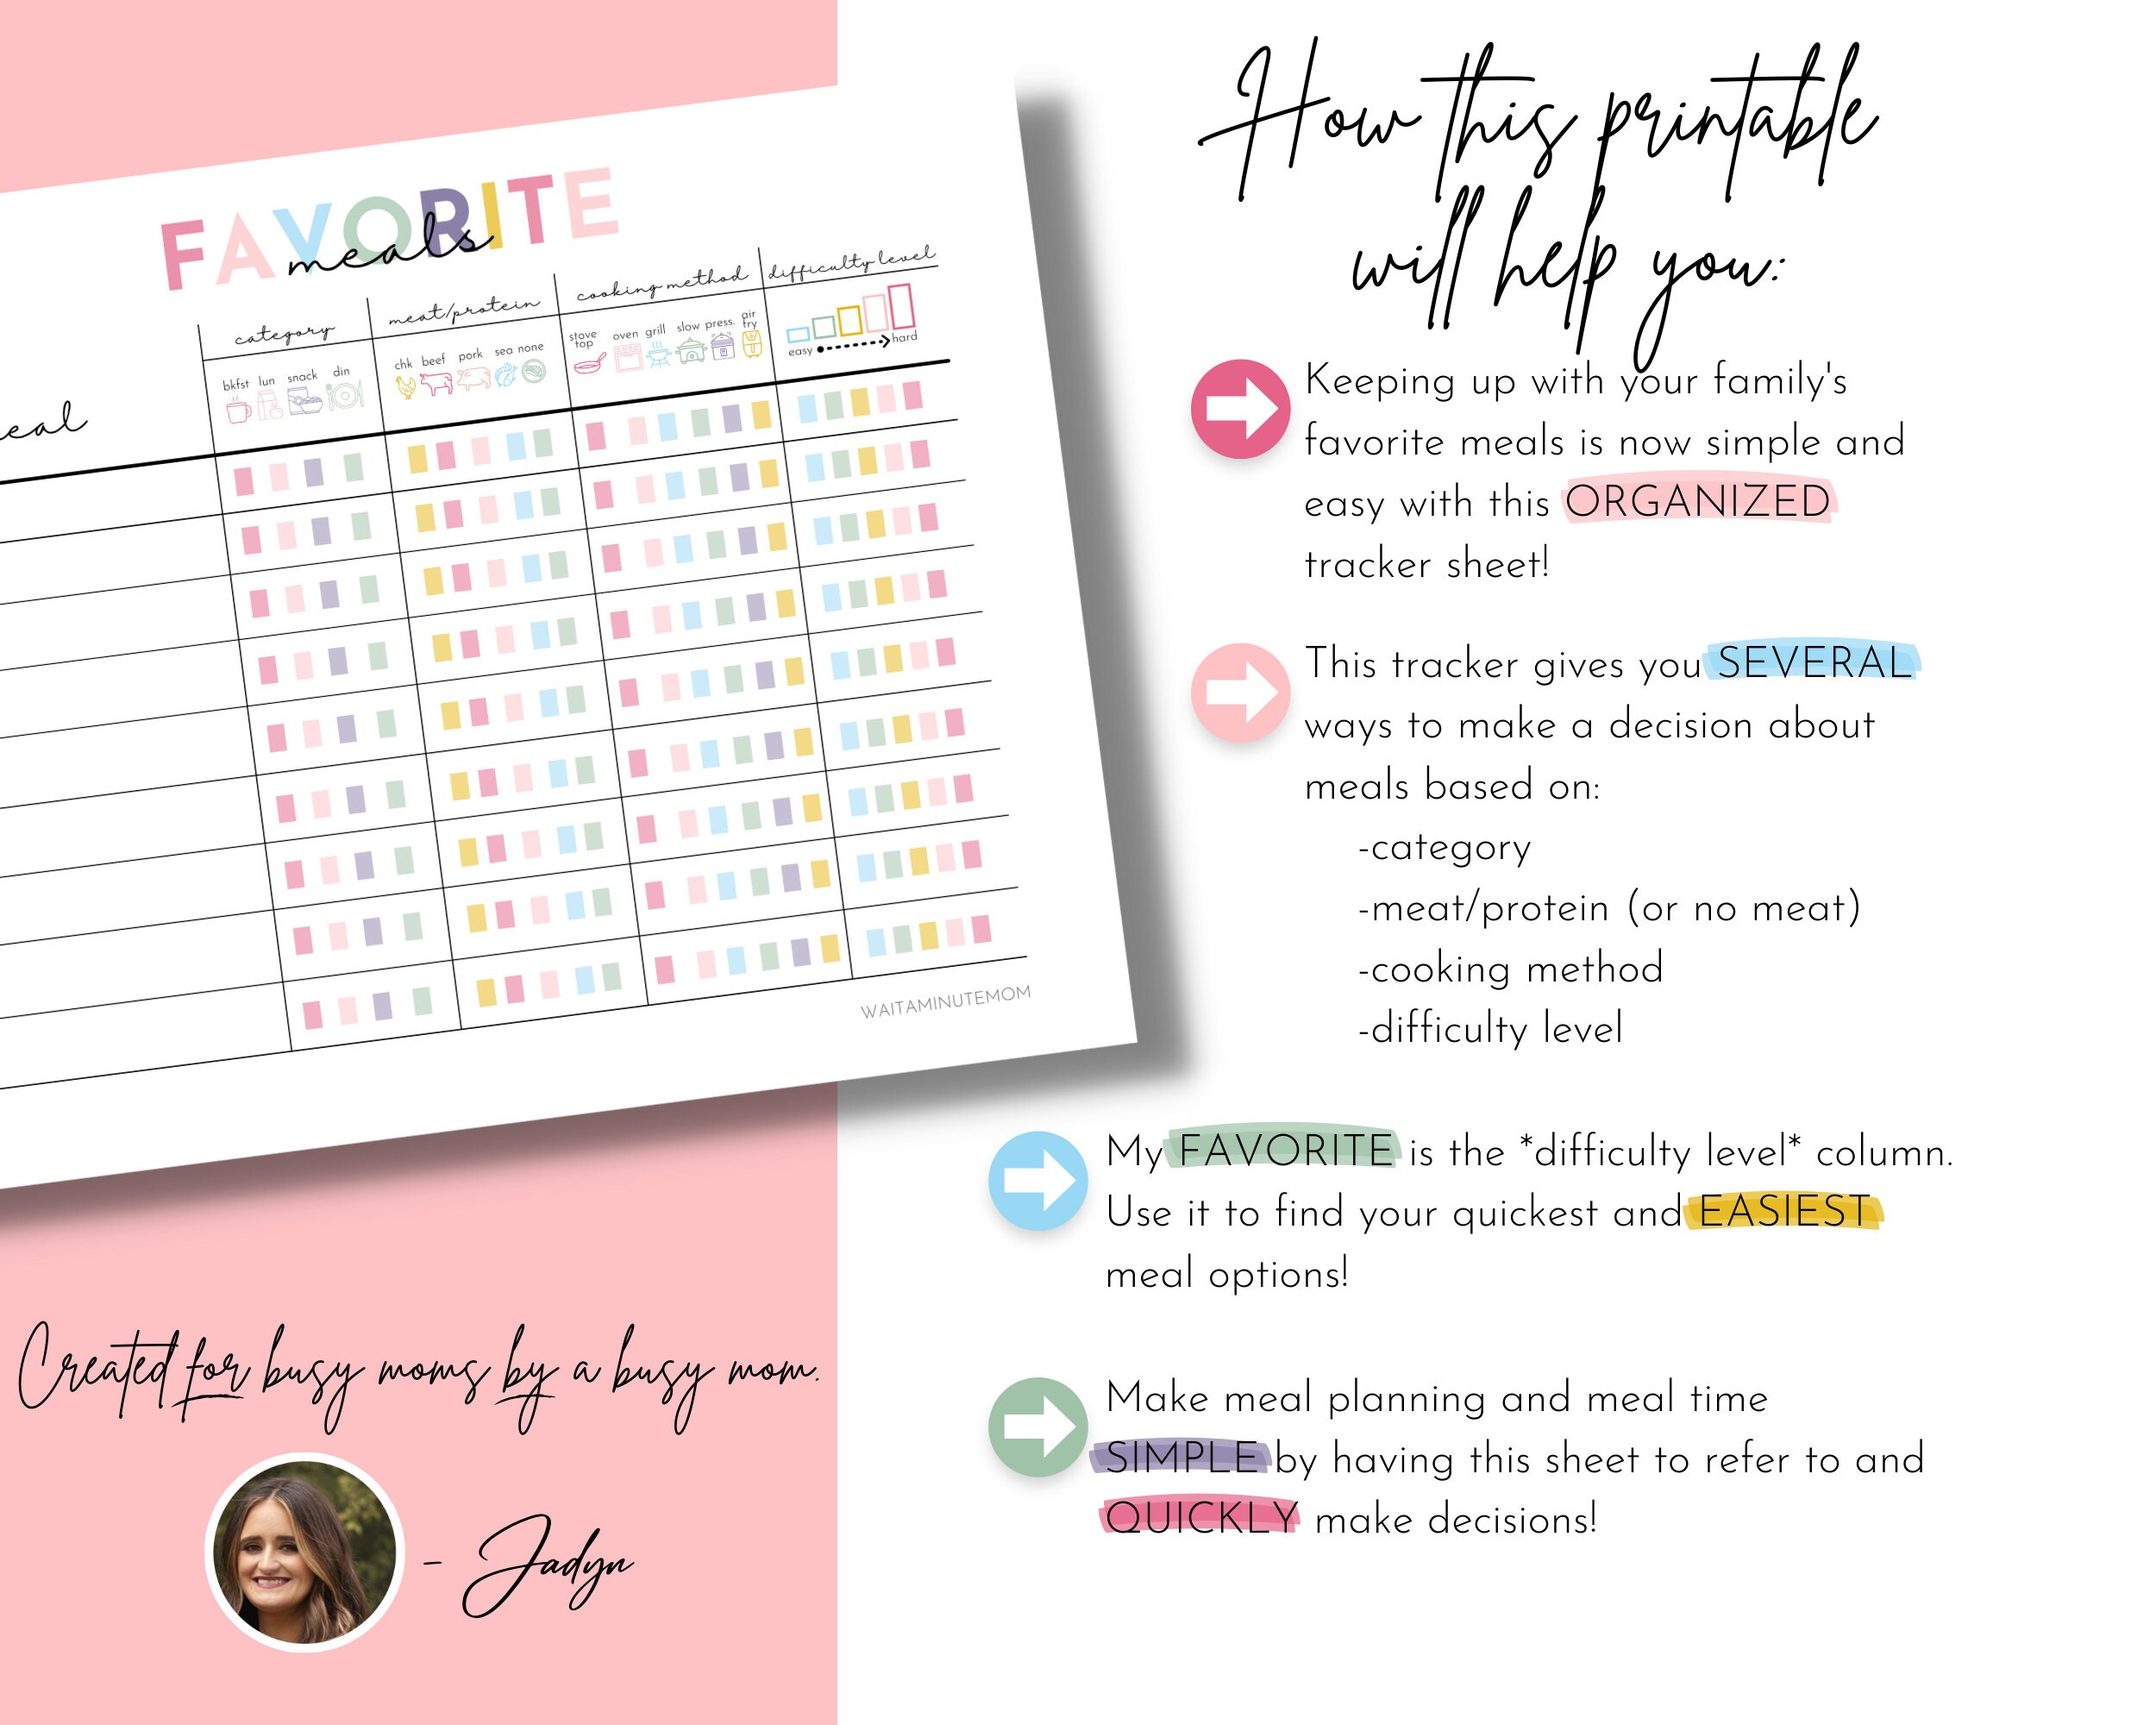 FAVORITE
meals
category
meat/protein
cooking method
difficulty level
bkfst lun snack din
chk beef pork sea none
stove top oven grill slow press. air fry
easy hard
WAITAMINUTEMOM
How this printable
will help you:
Keeping up with your family's
favorite meals is now simple and
easy with this ORGANIZED
tracker sheet!
This tracker gives you SEVERAL
ways to make a decision about
meals based on:
-category
-meat/protein (or no meat)
-cooking method
-difficulty level
My FAVORITE is the *difficulty level* column.
Use it to find your quickest and EASIEST
meal options!
Make meal planning and meal time
SIMPLE by having this sheet to refer to and
QUICKLY make decisions!
Created for busy moms by a busy mom.
- Jadyn